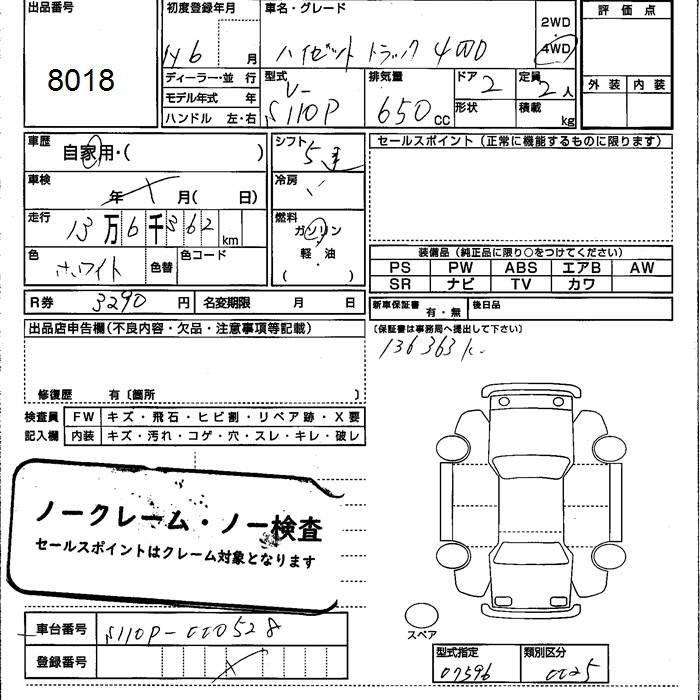 出品番号
8018
初度登録年月
14 6 月
ディーラー・並 行
モデル年式 年
ハンドル 左・右
車名・グレード
ハイゼット トラック 4WD
2WD
4WD
型式
V-
S110P
排気量
650 cc
ドア 2
形状
定員 2 人
積載 kg
評価点
外装 内装
車歴
自家用・( )
車検
年 月( 日)
走行
13万6千362 km
色
ホワイト
色替
色コード
シフト
5速
冷房
燃料
ガソリン
軽・油
( )
R券 3290 円
名変期限 月 日
セールスポイント(正常に機能するものに限ります)
装備品(純正品に限り○をつけてください)
PS PW ABS エアB AW
SR ナビ TV カワ
新車保証書 有・無
後日品
(保証書は事務局へ提出して下さい)
136363K.
出品店申告欄(不良内容・欠品・注意事項等記載)
修復歴 有〔箇所 〕
検査員 FW キズ・飛石・ヒビ割・リペア跡・X要
記入欄 内装 キズ・汚れ・コゲ・穴・スレ・キレ・破レ
ノークレーム・ノー検査
セールスポイントはクレーム対象となります
車台番号 S110P-000528
登録番号
スペア
型式指定 07596
類別区分 0025